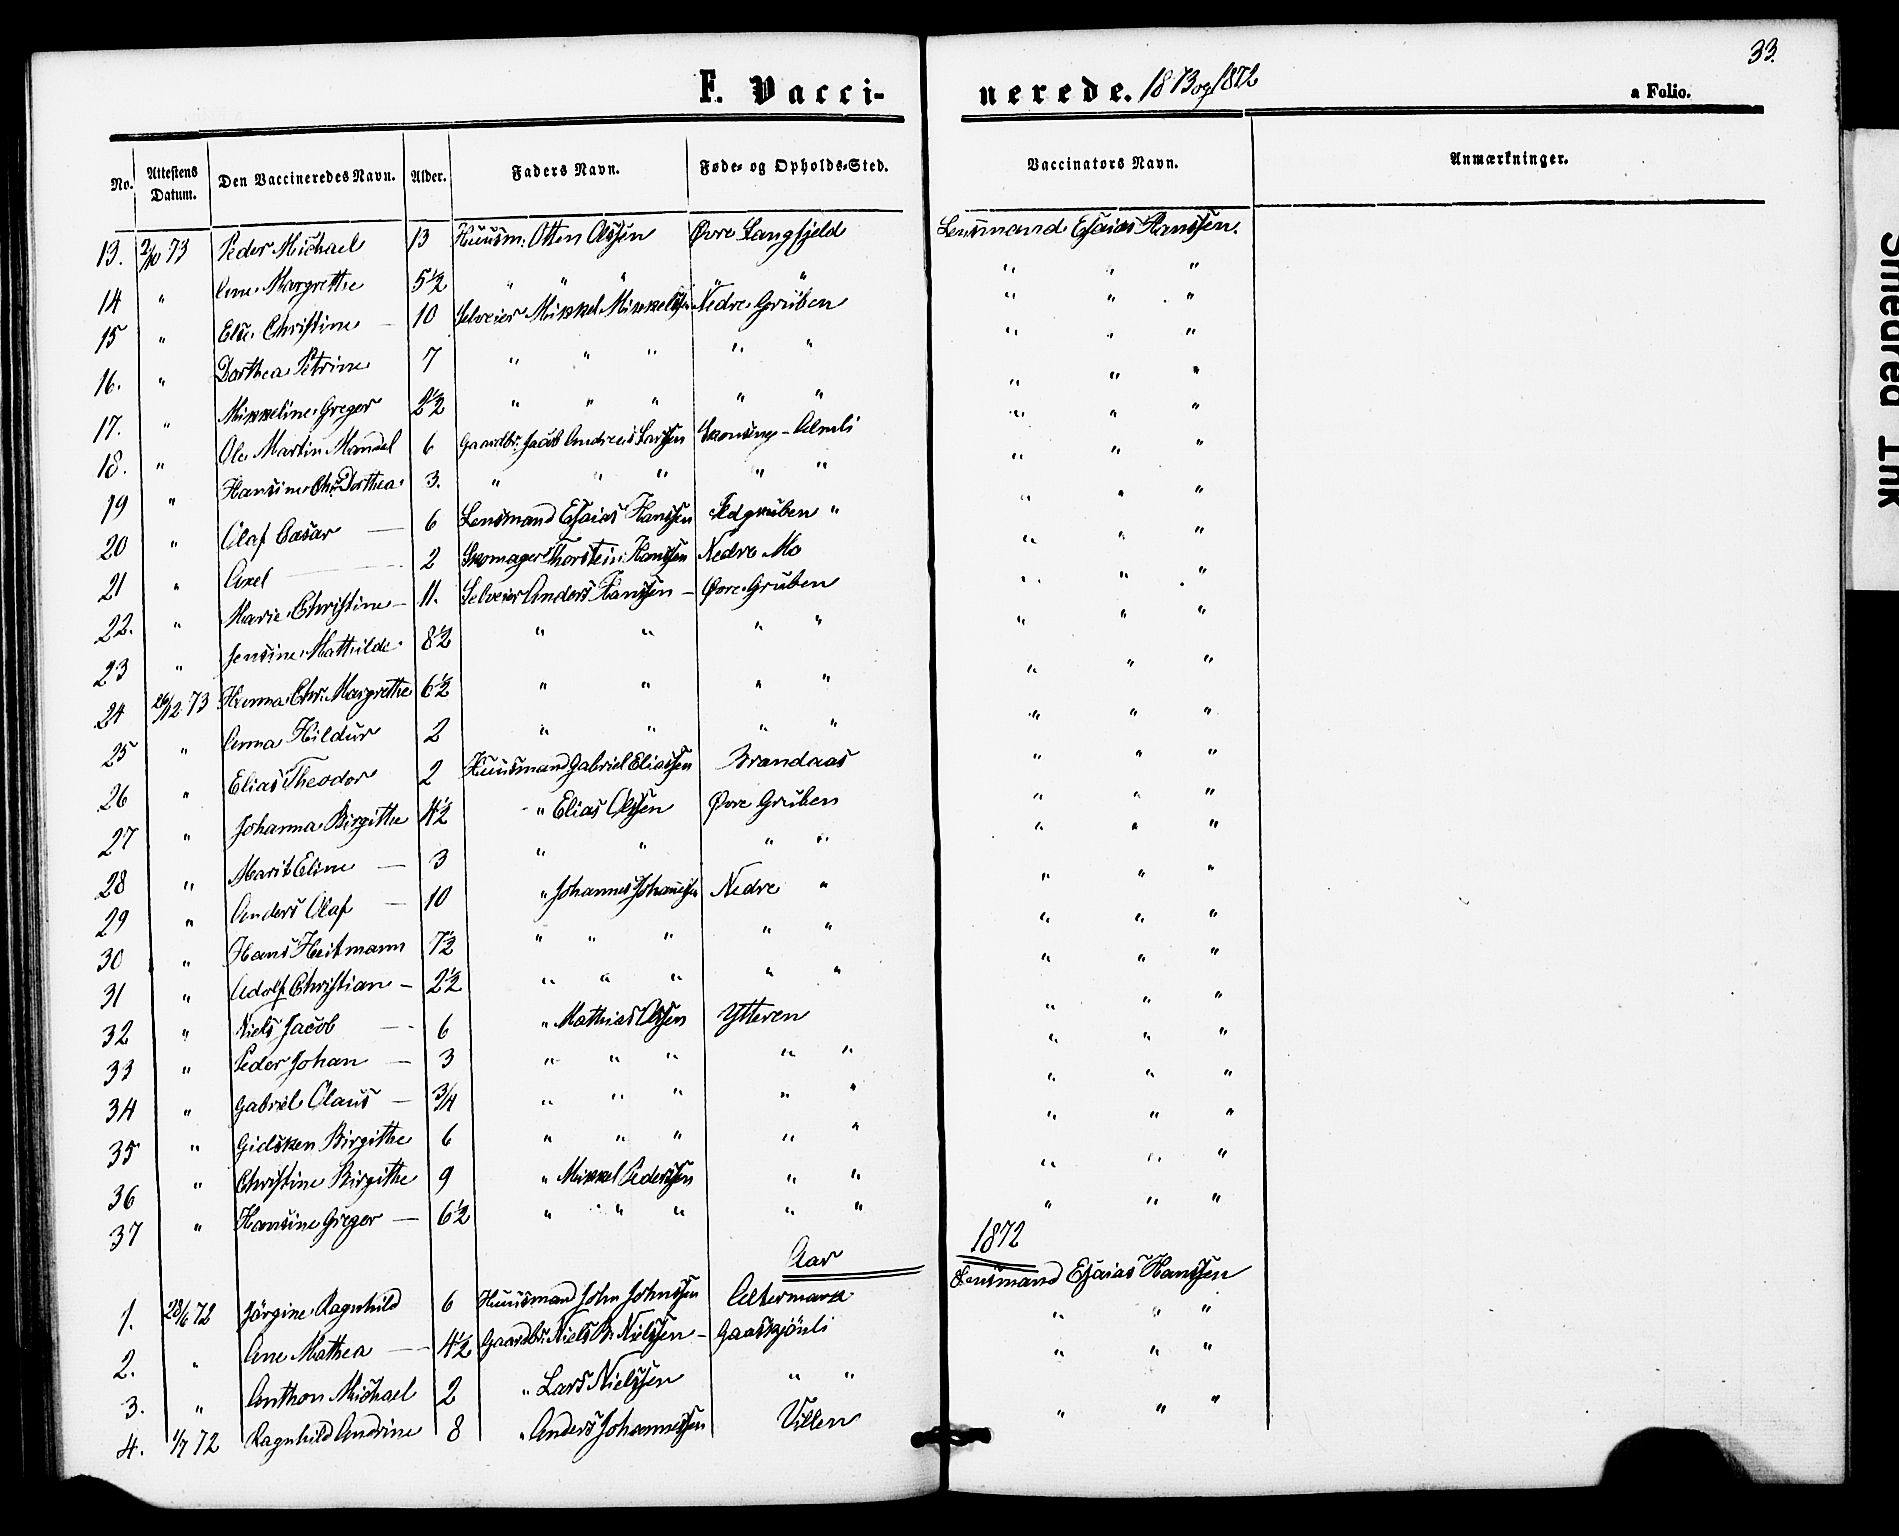 33.
F. Vaccinerede. 1873 og 1872
a Folio.
No. Attestens Datum. Den Vaccineredes Navn. Alder. Faders Navn. Føde- og Opholds-Sted. Vaccinators Navn. Anmærkninger.
13. 2/10 73 Peder Michael 13 Huusm. Otten Olssen Øvre Langfjeld Lensmand Esaias Hanssen.
14 " Ane Margrethe 5 1/2 " " " " " " "
15 " Else Christine — 10 Selveier Mikkel Mikkelsen Nedre Gruben " " "
16. " Dorthea Petrine 7 " " " " " " " "
17. " Mikkeline Greger 2 1/2 " " " " " " " "
18. " Ole Martin Mandel 6 Gaardbr. Jacob Andreas Larssen - Almli " " "
19 " Hansine Chr. Dorthea 3. " " " " " " " "
20 " Olaf Cæsar — 6 Lensmand Esaias Hanssen " " " "
21 " Axel — 2 Skomager Thorstein Hanssen Nedre Mo " " "
22. " Marie Christine — 11. Selveier Anders Hanssen — Øvre Gruben " " "
23 " Jensine Mathilde 8 1/2 " " " " " " "
24 26/12 73 Hanna Chr. Margrethe 6 1/2 " " " " " " "
25 " Anna Hildur 2 " " " " " " "
26 " Elias Theodor 2 Huusmand Gabriel Eliassen Brandaas " " "
27 " Johanna Birgithe 4 1/2 " Elias Olssen Øvre Gruben " " "
28 " Marit Eline — 3 " " " " " " "
29 " Anders Olaf — 10 " Johannes Johannessen Nedre " " " "
30 " Hans Heitmann 7 1/2 " " " " " " " "
31 " Adolf Christian — 2 1/2 " " " " " " " "
32 " Niels Jacob — 6 " Mathias Olssen Ytteren " " "
33 " Peder Johan — 3 " " " " " " " "
34 " Gabriel Olaus — 3/4 " " " " " " " "
35 " Gidsken Birgithe 6 " " " " " " " "
36 " Christine Birgithe 9 " Mikkel Pederssen " " " " "
37 " Hansine Greger — 6 1/2 " " " " " " " "
Aar 1872
1. 28/6 72 Jörgine Ragnhild 6 Huusmand John Johnssen Altermark Lensmand Esaias Hanssen
2. " Ane Mathea — 4 1/2 Gaardbr. Niels Nielssen — Gaaskjönli " " "
3. " Anthon Michael 2 " Lars Nielssen " " " " "
4. 1/7 72 Ragnhild Andrine 8 " Anders Johannessen Villen " " "
Smeared Ink